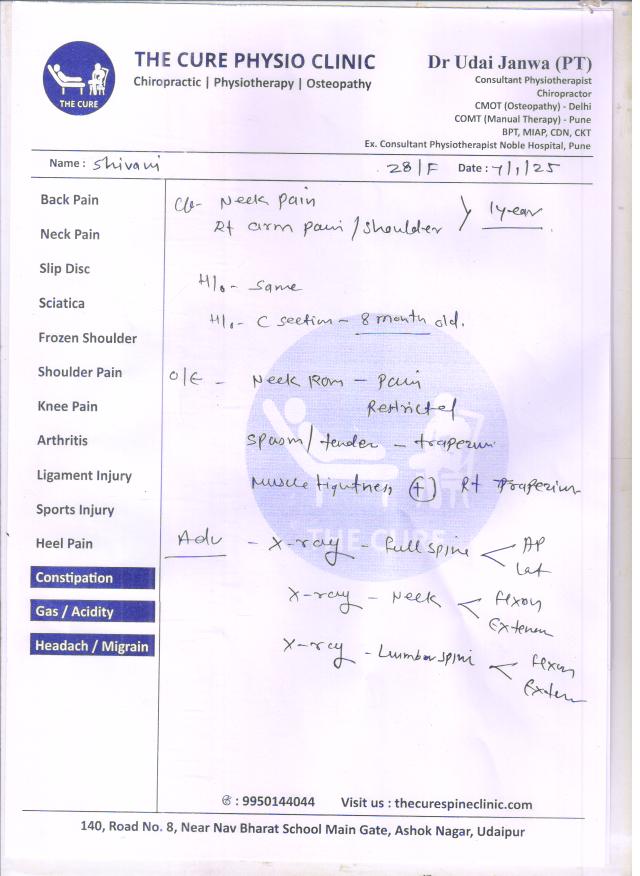 THE CURE PHYSIO CLINIC
Chiropractic | Physiotherapy | Osteopathy
THE CURE
Dr Udai Janwa (PT)
Consultant Physiotherapist
Chiropractor
CMOT (Osteopathy) - Delhi
COMT (Manual Therapy) - Pune
BPT, MIAP, CDN, CKT
Ex. Consultant Physiotherapist Noble Hospital, Pune
Name : Shivani 28/F Date : 7/1/25
Back Pain
Neck Pain
Slip Disc
Sciatica
Frozen Shoulder
Shoulder Pain
Knee Pain
Arthritis
Ligament Injury
Sports Injury
Heel Pain
Constipation
Gas / Acidity
Headach / Migrain
C/o- Neck pain
Rt arm pain / shoulder } 1 year
H/o- same
H/o- C section - 8 month old.
O/E - Neck ROM - pain
Restricted
spasm / tender - trapezius
Muscle tightness (+) Rt Trapezius
Adv - X-ray - Full spine < AP
Lat
X-ray - Neck < flexon
Extenen
X-ray - Lumbar spine < flexon
Exten
THE CURE
: 9950144044 Visit us : thecurespineclinic.com
140, Road No. 8, Near Nav Bharat School Main Gate, Ashok Nagar, Udaipur